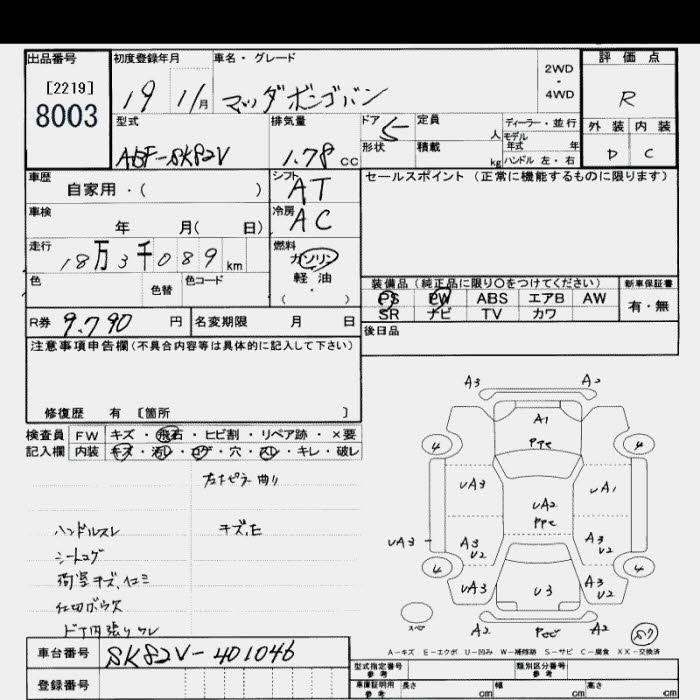 出品番号 初度登録年月 車名・グレード 評価点
[2219]
8003
19 11月 マツダボンゴバン 2WD・4WD R
型式 排気量 ドア 5 定員 人 ディーラー・並行 外装 内装
モデル年式 年
ABF-SK82V 1.78 CC 形状 積載 kg ハンドル 左・右 D C
車歴 自家用・( ) シフト AT セールスポイント (正常に機能するものに限ります)
車検 年 月( 日) 冷房 AC
走行 18万3千089km 燃料 ガソリン
軽油
( )
色 色替 色コード
装備品 (純正品に限り〇をつけてください) 新車保証書
PS PW ABS エアB AW 有・無
SR ナビ TV カワ
R券 9,790 円 名変期限 月 日
後日品
注意事項申告欄(不具合内容等は具体的に記入して下さい)
修復歴 有 [箇所 ]
検査員 FW キズ・飛石・ヒビ割・リペア跡・×要
記入欄 内装 キズ・汚レ・コゲ・穴・スレ・キレ・破レ
右ナピラー曲り
ハンドルスレ キズ,E
シートコゲ
荷室キズ,
仕切ボウ欠
ドア内張りワレ
A3 A2
A1
PTC
4 4
UA3 UA1
UA2
PPC
UA3 A3 U2 A3 U2
4 4
UA3 U3 A3 U2
スペア
A2 A2
A-キズ E-エクボ U-凹み W-補修跡 S-サビ C-腐食 XX-交換済
車台番号 SK82V-401046
登録番号
型式指定番号 参考 類別区分番号 参考
車庫証明用 参考 長さ cm 幅 cm 高さ cm